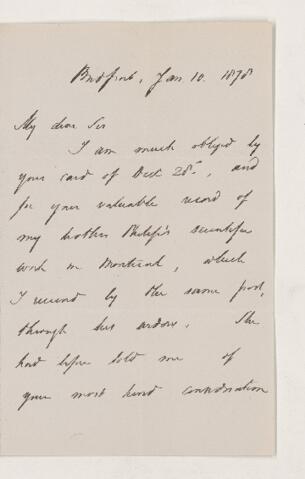 Bridport, Jan. 10. 1878
My dear Sir
I am much obliged by
your card of Dect 28th, and
for your valuable record of
my brother Philip's scientific
work in Montreal, which
I received by the same post,
through his widow. She
had before told me of
your most kind consideration